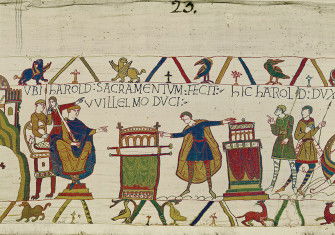 23.
VBI hAROLD: SACRAMENTVM: FECIT:· hIC hAROLD: DVX
VVILLELMO DVCI:·